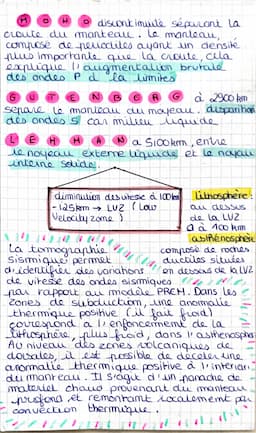 MOHO discontinuité séparant la
croûte du manteau. Le manteau,
composé de péridotites ayant un densité
plus importante que la croûte, cela
explique l'augmentation brutale
des ondes P à la limites
GUTENBERG à 2900 km
sépare le manteau du noyau. disparition
des ondes S car milieu liquide
LEHMAN à 5100km, entre
le noyau externe liquide et le noyau
interne solide.
diminution des vitesse à 100km
-125km → LVZ (Low
Velocity zone)
lithosphère:
au dessus
de la LVZ
à 100 km
asthénosphère
composé de roches
ductiles situées
en dessous de la LVZ
La tomographie
sismique permet
d'identifier des variations
de vitesse des ondes sismiques
par rapport au modèle PREM. Dans les
zones de subduction, une anomalie
thermique positive (il fait froid)
correspond à l'enfoncement de la
lithosphère, plus froid, dans l'asthénosphère
Au niveau des zones volcaniques de
dorsales, il est possible de déceler une
anomalie thermique positive à l'intérieur
du manteau. Il s'agit d'un panache de
matériel chaud provenant du manteau
profond et remontant localement par
convection thermique.